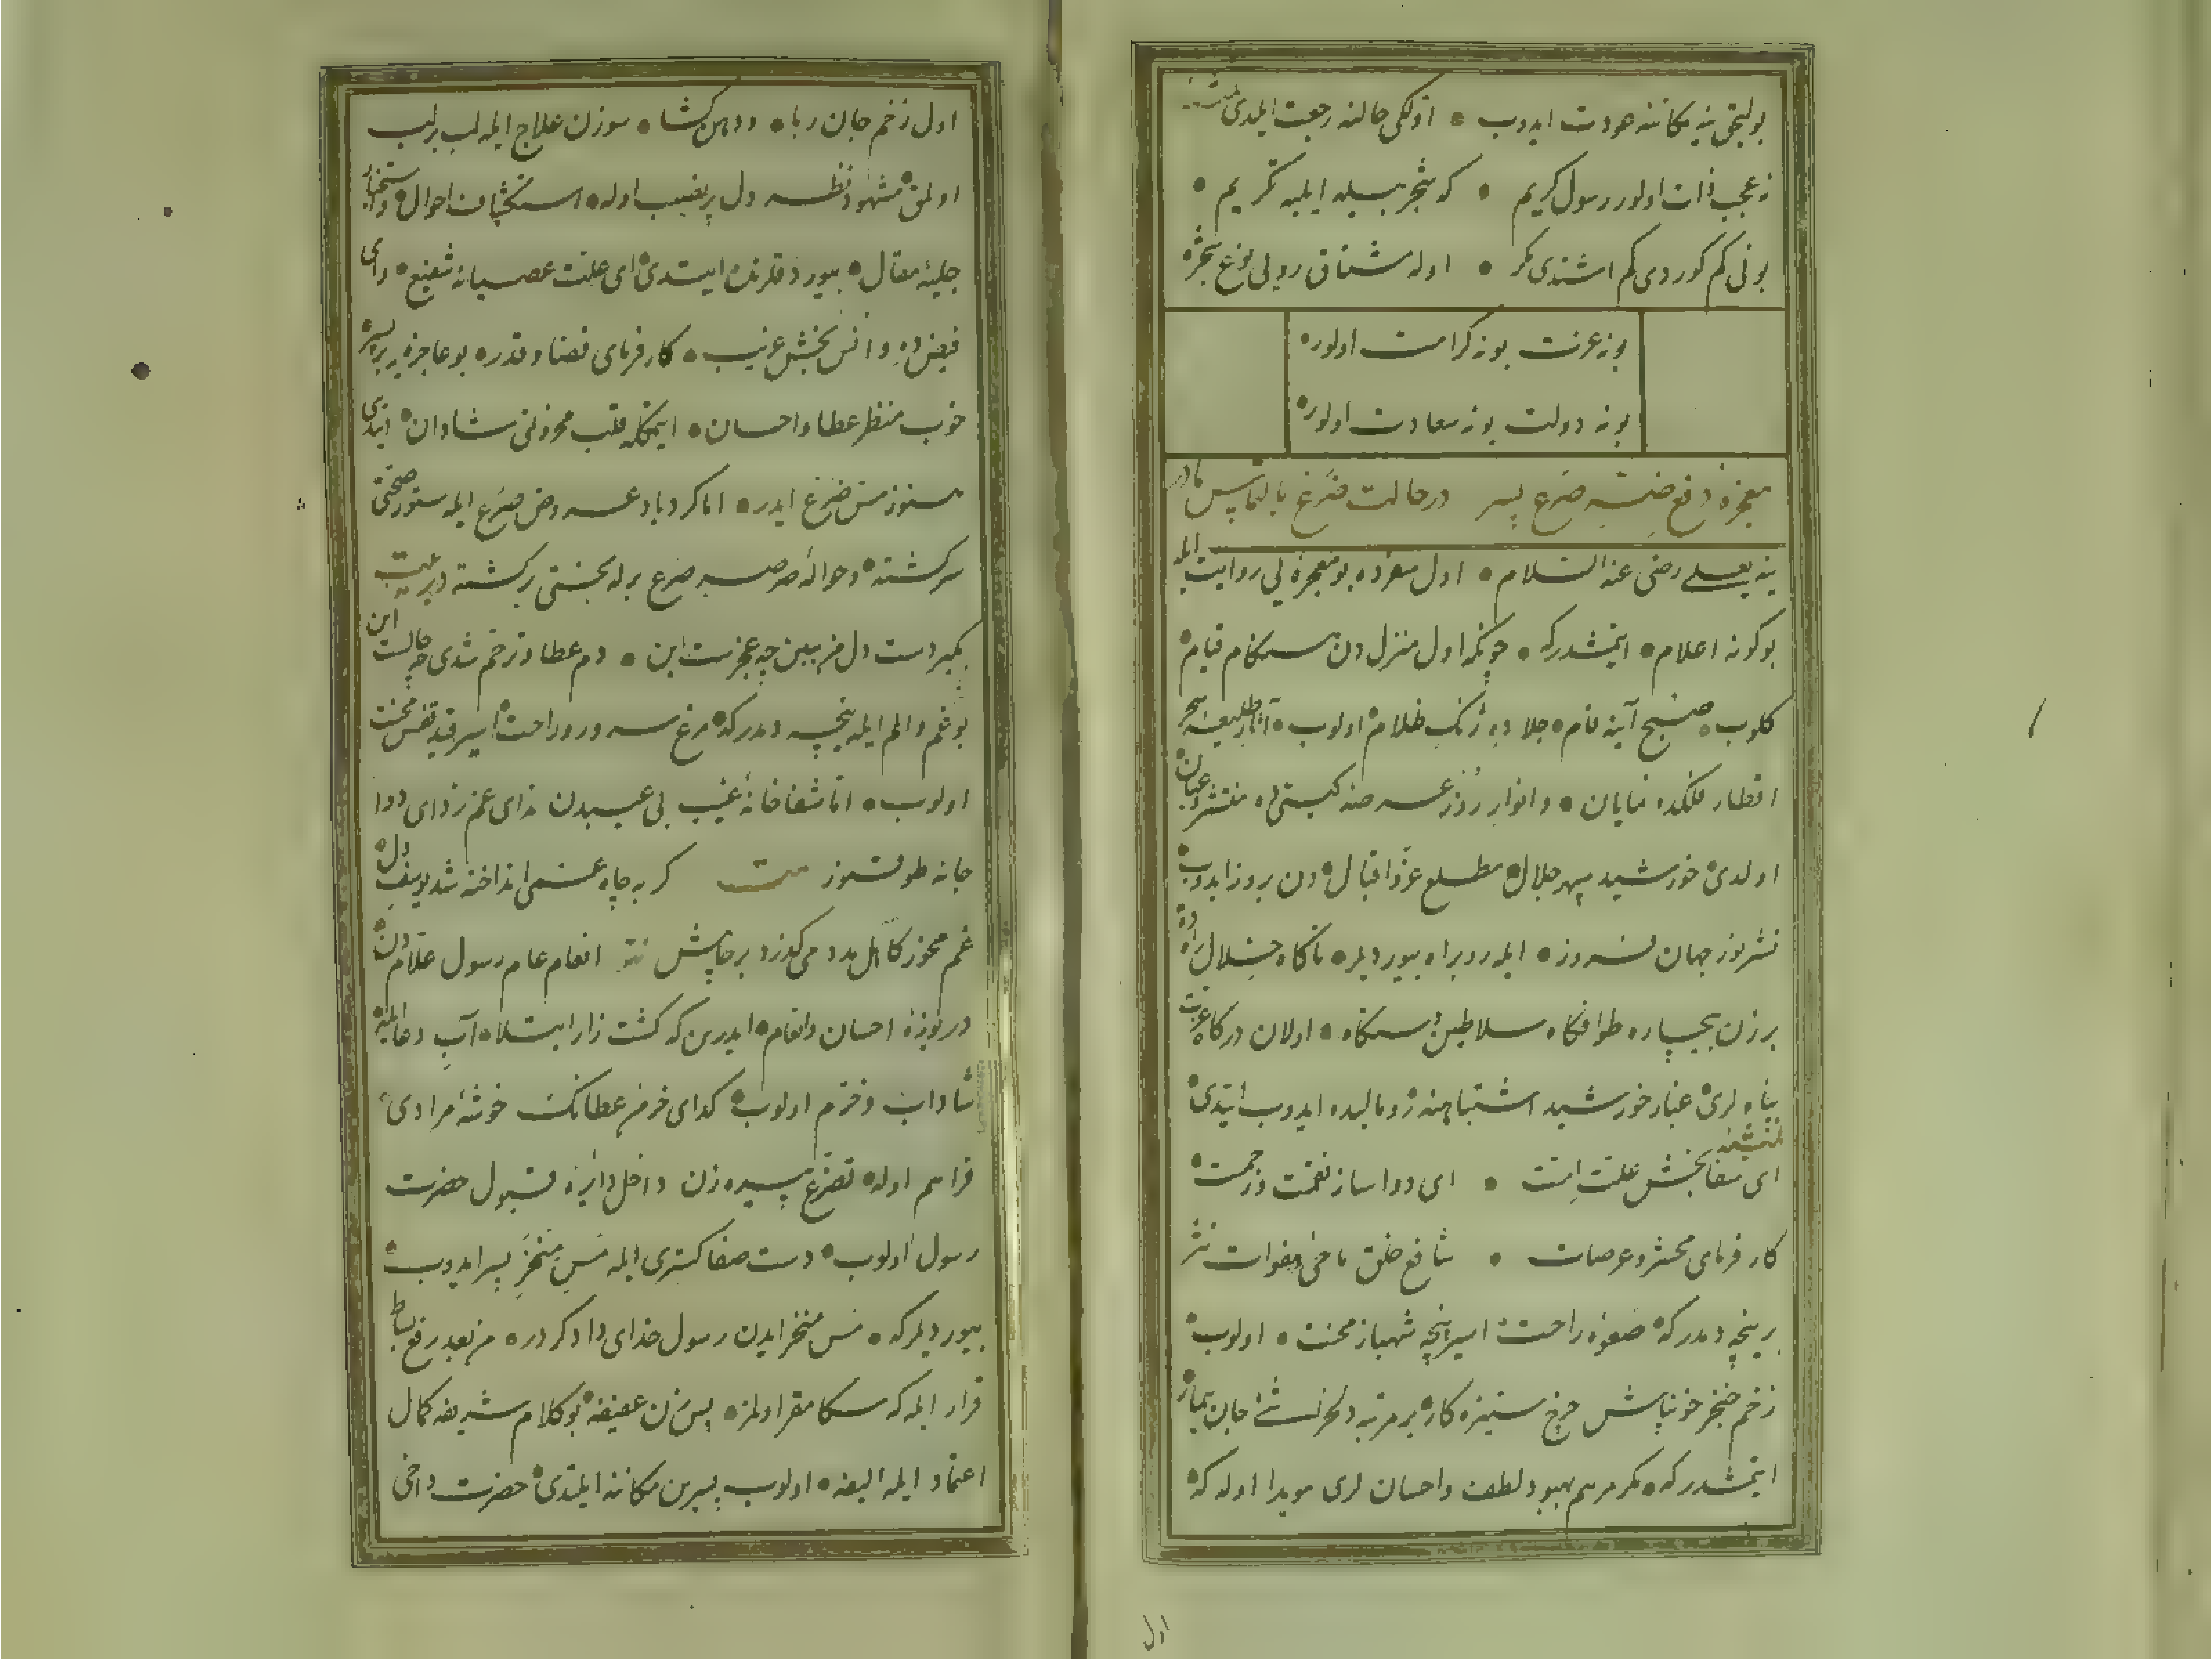 بولیجق ینه مکاننه عودت ایدوب اولکی حالنه رجعت ایلدی
نه عجب ذات اولور رسول کریم که شجر بیله ایلیه تکریم
بونی کم کوردی کم اشتدی مکر اوله شقاق روی نوع شجره
بو نه عزت بو نه کرامت اولور
بو نه دولت بو نه سعادت اولور
معجزه دفع صرع پسر در حالت صرع با التماس مادر
ینه یعلی رضی عنه السلام اول سفرده بو معجزه لی روایت ایله
بو کونه اعلام ایتمشدر که چونکه اول منزل دن هنکام قیام
کلوب صبح آینه فام جلا ده ژنک ظلام اولوب آثار طلیعه سحر
اقطار فلکده نمایان و انوار روز عرصه کیتی ده منتشر و عیان
اولدی خورشید سپهر جلال مطلع عز و اقبال دن بروز ایدوب
نشر نور جهان فروز ایله روبراه بیوردیلر ناکاه خلال راه ده
بر زن بیچاره طوافکاه سلاطین دستکاه اولان درکاه عزت
پناه لری غبار خورشید اشتباهنه رو مالیده ایدوب ایتدی
ای شفا بخش علت امت ای دوا ساز نقمت و زحمت
کار فرمای محشر و عرصات شافع خلق ماحی هفوات
بر نیچه دمدر که صعوه راحت اسیر پنجه شهباز محنت اولوب
زخم خنجر خونپاش چرخ ستیزه کار بر مرتبه دلخراش جان بیمار
ایتمشدر که مکر مرهم بهبود لطف و احسان لری هویدا اوله که
اول
اول زخم جان ربا و دهن کشا سوزن علاج ایله لب بر لب
اولمق مشهود نظر دل پر نصیب اوله استکشاف احوال و استخبار
جلیه مقال بیوردقلرنده ایتدی ای علت عصیانه شفیع و ای
فیض ده و انس بخش غریب کار فرمای قضا و قدر بو عاجزه یه بر پسر
خوب منظر عطا و احسان ایتمکله قلب محزونی شادان ایتدی
هنوز مس ضرع ایدر اما کردباد عروض صرع ایله ستور صحتی
سرکشته و حواله صرصر صرع برله بختی برکشته در بیت
بکیر دست دل من ببین چه عجزست این دم عطا و ترحم شدی چه حالت این
بو غم و الم ایله نیچه دمدر که مرغ سرور و راحت اسیر قید قفس محنت
اولوب اما شفا خانه غیب بی عیبدن ندای غم زدای دوا
جانه طوقنمز بیت کر به چاه غمی انداخته شد یوسف دل
غم مخور کاهل مدد می کذرد بر چاهش نثر انعام عام رسول علام دن
دریوزه احسان و انعام ایدرین که کشت زار ابتلا آب دعا ایله
شاداب و خرم اولوب کدای خرمن عطانک خوشه مرادی
فراهم اوله تضرع پیره زن داخل دایره قبول حضرت
رسول اولوب دست صفا کستری ایله مس منخر پسر ایدوب
بیوردیلر که مس منخر ایدن رسول خدای دادکر در من بعد رفع بساط
قرار ایله که سکا مقر اولمز پس زن عفیفه بو کلام شریفه کمال
اعتماد ایله الیفه اولوب پسرین مکاننه ایلتدی حضرت داخی